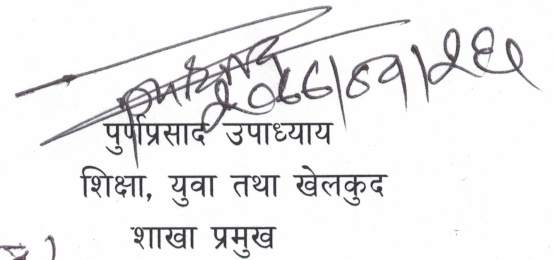 पुर्णप्रसाद उपाध्याय
शिक्षा, युवा तथा खेलकुद
शाखा प्रमुख